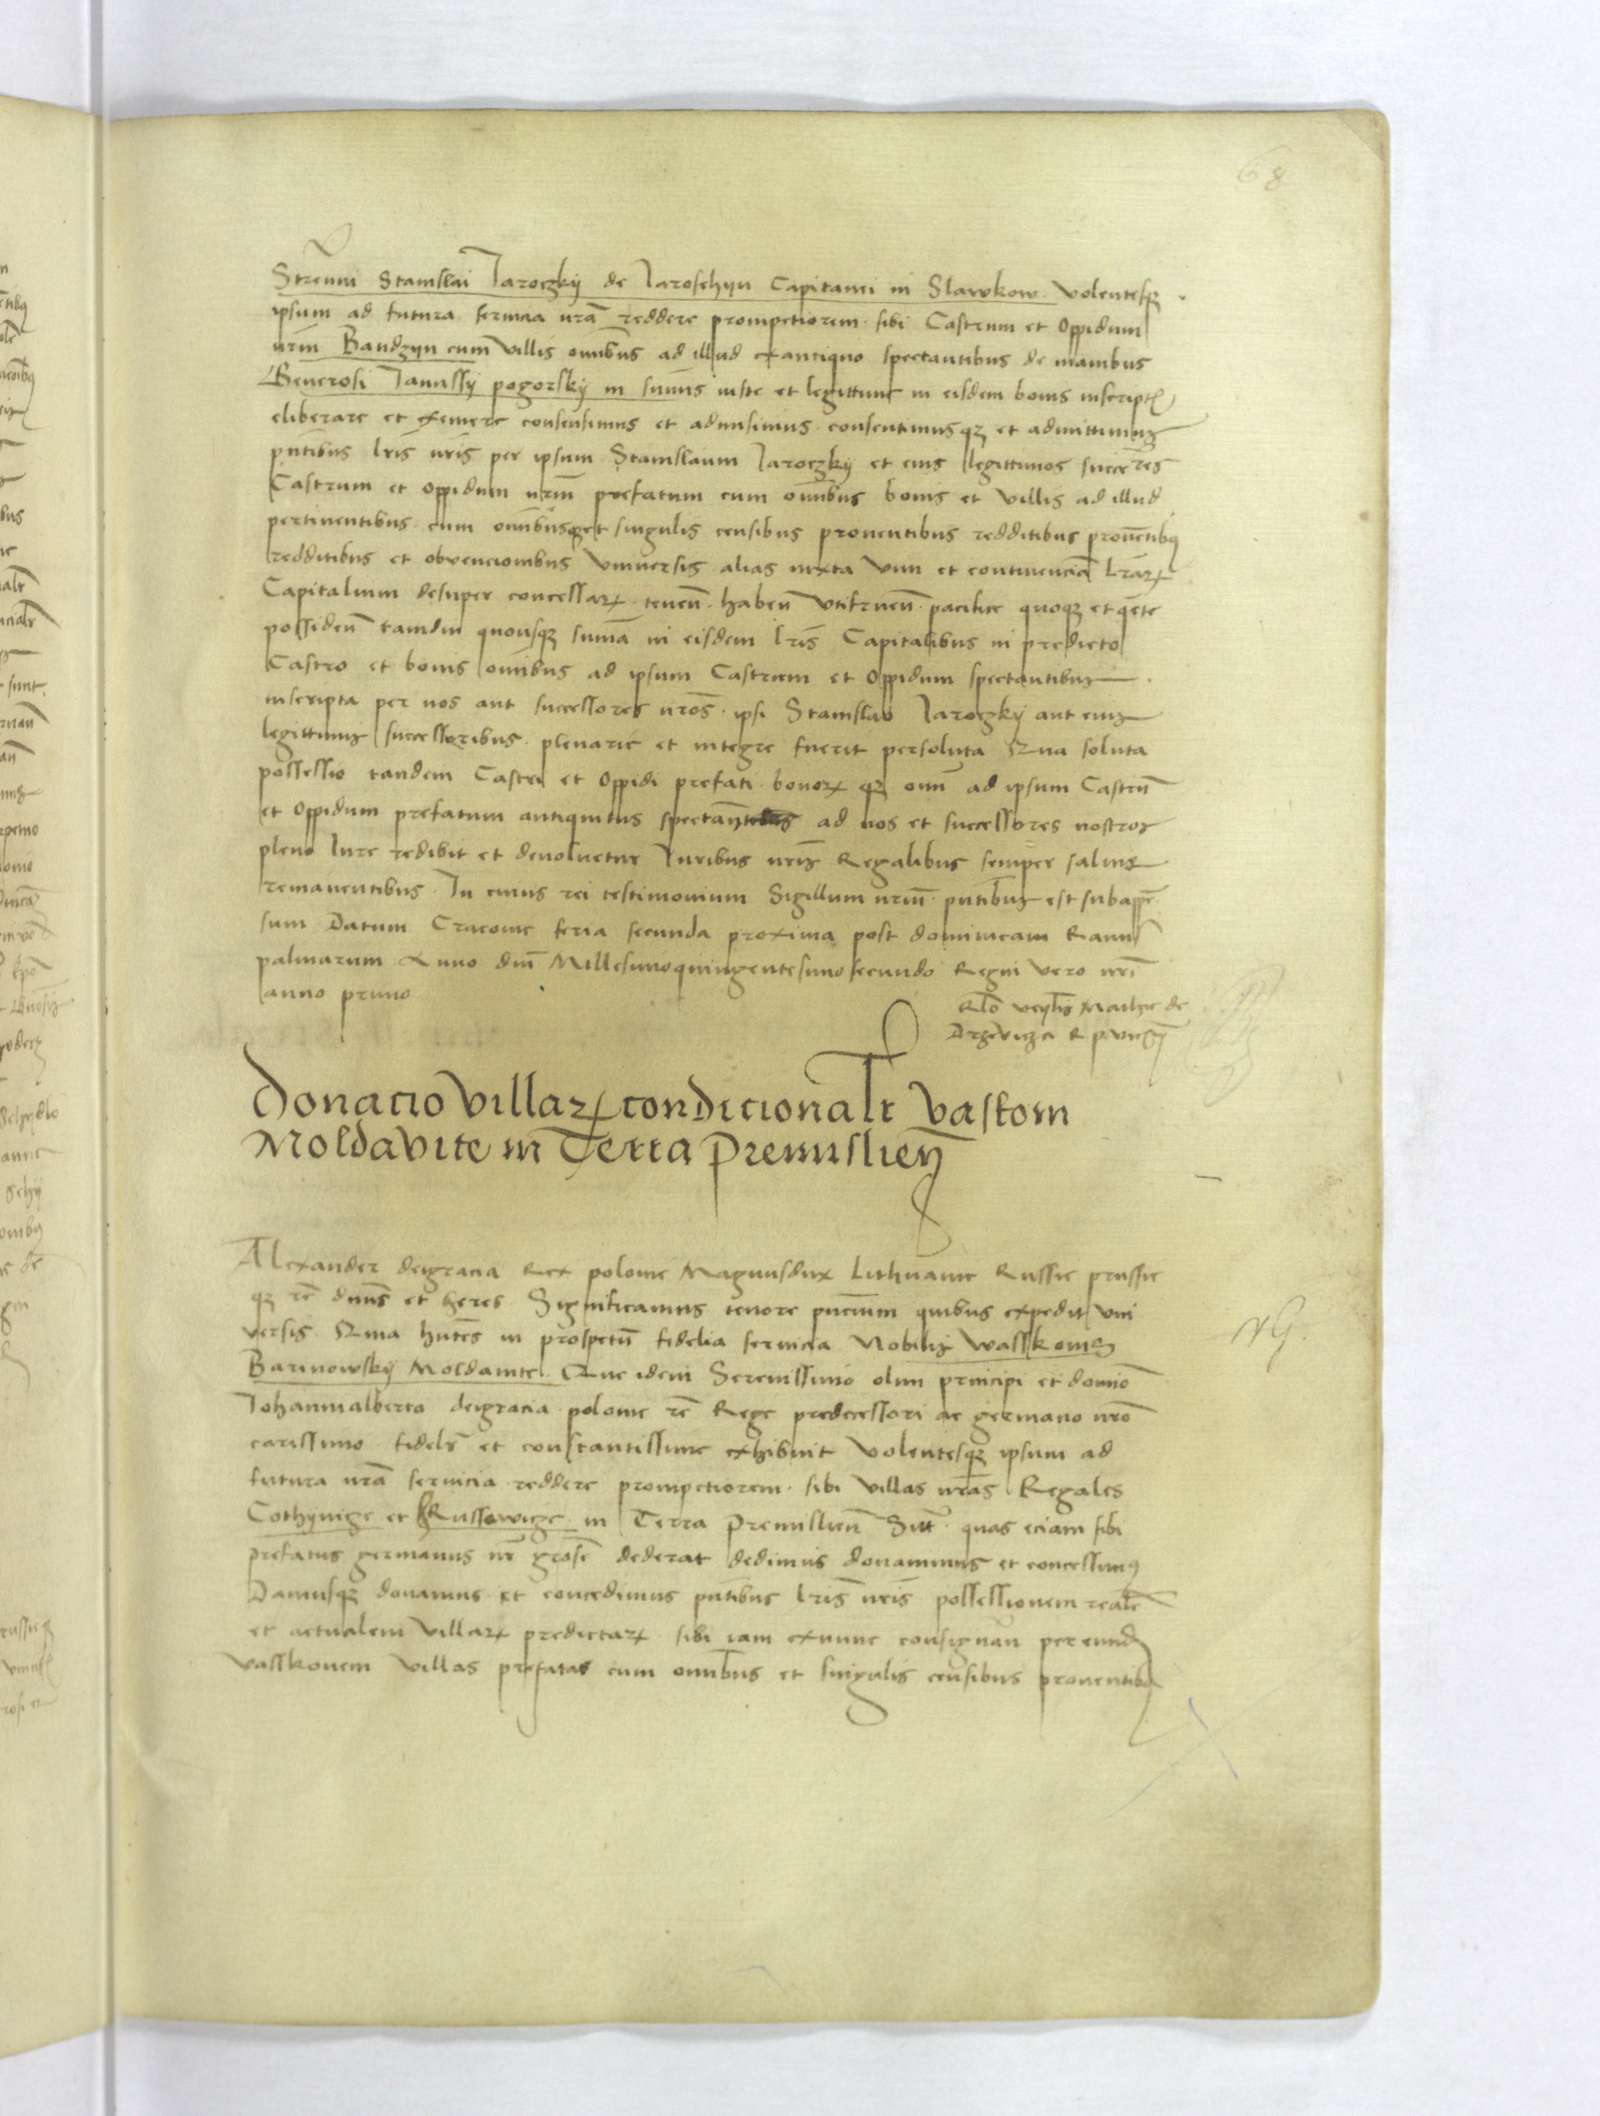 68
Strenui Stanislai Jaroczky de Jaroschyn Capitanei in Slawkow volentesq3
ipsum ad futura servicia nrã reddere prompciorem sibi Castrum et Oppidum
nrm̃ Bandzyn cum villis omĩbus ad illud exantiquo spectantibus de manibus
Generosi Janussij pogorsky in sum̃is iuste et legittime in eisdem bonis inscript
eliberare et exemere consensimus et admisimus consentimusq3 et admittimus
pñtibus lris̃ nris̃ per ipsum Stanislaum Jaroczky et eius legittimos succẽres
Castrum et Oppidum nrm̃ prefatum cum omĩbus bonis et villis ad illud
pertinentibus cum omĩbusq3 et singulis censibus proventibus redditibus provẽtibus
redditibus et obvencionibus universis alias iuxta vim et continenciã lrãr
Capitalium desuper concessar teneñ habeñ utifrueñ pacifice quoq3 et q̃ete
possideñ tamdiu quousq3 sum̃a in eisdem lris̃ Capitalibus in predicto
Castro et bonis omĩbus ad ipsum Castrum et Oppidum spectantibus
inscripta per nos aut successores nros̃ ipsi Stanislao Jaroczky aut eius
legittimis successoribus plenarie et integre fuerit persoluta Qua soluta
possessio tandem Castri et Oppidi prefati bonor q3 omĩ ad ipsum Castrũ
et Oppidum prefatum antiquitus spectañ ad nos et successores nostros
pleno Iure redibit et devoluetur Iuribus nris̃ Regalibus semper salvis
remanentibus In cuius rei testimonium Sigillum nrm̃ pñtibus est subappẽ
sum Datum Cracovie feria secunda proxima post dominicam Ramis̃
palmarum Anno dñi Millesimoquingentesimosecundo Regni vero nrĩ
anno primo
Rlõ veñlis Mathie de
Drzevicza R p viceñ
Donacio villar condicionalr vaskom
Moldavite in Terra Premislieñ
Alexander deigracia Rex polonie Magnusdux Lithuanie Russie prussie
q3 rẽ dñus et heres Significamus tenore pñcium quibus expedit uni
versis Quia hñtes in prospectũ fidelia servicia Nobilis Wasskonis
Barinowsky Moldavite Que idem Serenissimo olim principi et domĩo
Johannialberto deigracia polonie rẽ Rege predecessori ac germano nrõ
carissimo fidelr et constantissime exhibuit volentesq3 ipsum ad
futura nrã servicia reddere prompciorem sibi villas nrãs Regales
Cothynize et Russowize in Terra Premislieñ Sitt quas eciam sibi
prefatus germanus nr̃ grosẽ dederat dedimus donavimus et concessimus
Damusq3 donamus et concedimus pñtibus lris̃ nris̃ possessionem realẽ
et actualem villar predictar sibi iam exnunc consignañ per eund
vasskonem villas prefatas cum omĩbus et singulis censibus proventibus